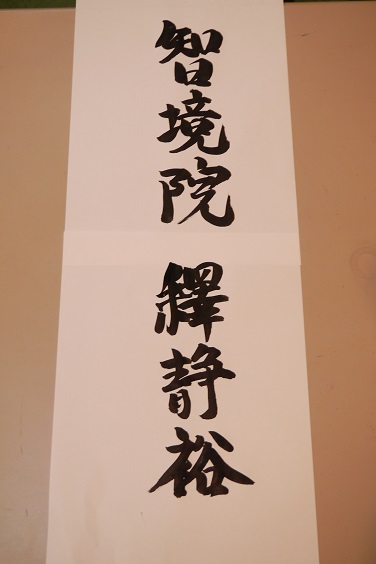 智境院 釋静裕